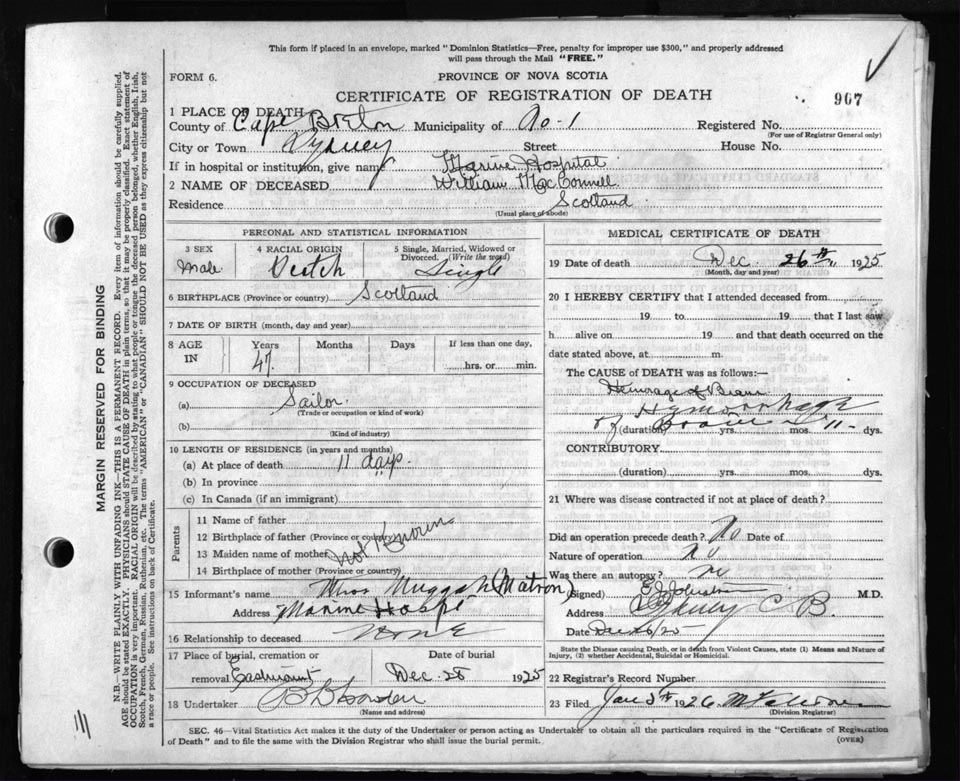 This form if placed in an envelope, marked "Dominion Statistics—Free, penalty for improper use $300," and properly addressed
will pass through the Mail "FREE."
FORM 6.
PROVINCE OF NOVA SCOTIA
CERTIFICATE OF REGISTRATION OF DEATH
907
1 PLACE OF DEATH
County of Cape Breton Municipality of No-1 Registered No.
(For use of Registrar General only)
City or Town Sydney Street House No.
If in hospital or institution, give name Marine Hospital
2 NAME OF DECEASED William MacConnell
Residence Scotland
(Usual place of abode)
PERSONAL AND STATISTICAL INFORMATION
3 SEX 4 RACIAL ORIGIN 5 Single, Married, Widowed or
Divorced. (Write the word)
Male Single
6 BIRTHPLACE (Province or country) Scotland
7 DATE OF BIRTH (month, day and year)
8 AGE IN Years Months Days If less than one day,
47 hrs. or min.
9 OCCUPATION OF DECEASED
(a) Sailor
(Trade or occupation or kind of work)
(b)
(Kind of industry)
10 LENGTH OF RESIDENCE (in years and months)
(a) At place of death 11 days
(b) In province
(c) In Canada (if an immigrant)
Parents
11 Name of father
12 Birthplace of father (Province or country)
13 Maiden name of mother
14 Birthplace of mother (Province or country)
Not Known
15 Informant's name Miss Muggah (Matron)
Address Marine Hospt
16 Relationship to deceased None
17 Place of burial, cremation or Date of burial
removal Eastmount Dec. 28 1925
18 Undertaker
(Name and address)
MEDICAL CERTIFICATE OF DEATH
19 Date of death Dec 26th 1925
(Month, day and year)
20 I HEREBY CERTIFY that I attended deceased from
19 to 19 that I last saw
h alive on 19 and that death occurred on
date stated above, at m
The CAUSE of DEATH was as follows:—
Hemorage of Brain
Hemorrhage
of Brain
(duration) yrs. mos. 11 dys.
CONTRIBUTORY
(duration) yrs. mos. dys.
21 Where was disease contracted if not at place of death?
Did an operation precede death? No Date of
Nature of operation No
Was there an autopsy? no
(Signed) M.D.
Address Sydney C B.
Date Dec 26/25
State the Disease causing Death, or in death from Violent Causes, state (1) Means and Nature of
Injury, (2) whether Accidental, Suicidal or Homicidal.
22 Registrar's Record Number
23 Filed Jan 5th 1926
(Division Registrar)
SEC. 46—Vital Statistics Act makes it the duty of the Undertaker or person acting as Undertaker to obtain all the particulars required in the "Certificate of Registration
of Death" and to file the same with the Division Registrar who shall issue the burial permit.
(OVER)
MARGIN RESERVED FOR BINDING
N.B.—WRITE PLAINLY WITH UNFADING INK—THIS IS A PERMANENT RECORD. Every item of information should be carefully supplied.
AGE should be stated EXACTLY. PHYSICIANS should STATE CAUSE OF DEATH in plain terms, so that it may be properly classified. Exact statement of
OCCUPATION is very important. RACIAL ORIGIN will be described by stating to what people or tongue the deceased person belonged, whether English, Irish,
Scotch, French, German, Russian, Ruthenian, etc. The terms "AMERICAN" or "CANADIAN" SHOULD NOT BE USED as they express citizenship but not
a race or people. See instructions on back of Certificate.